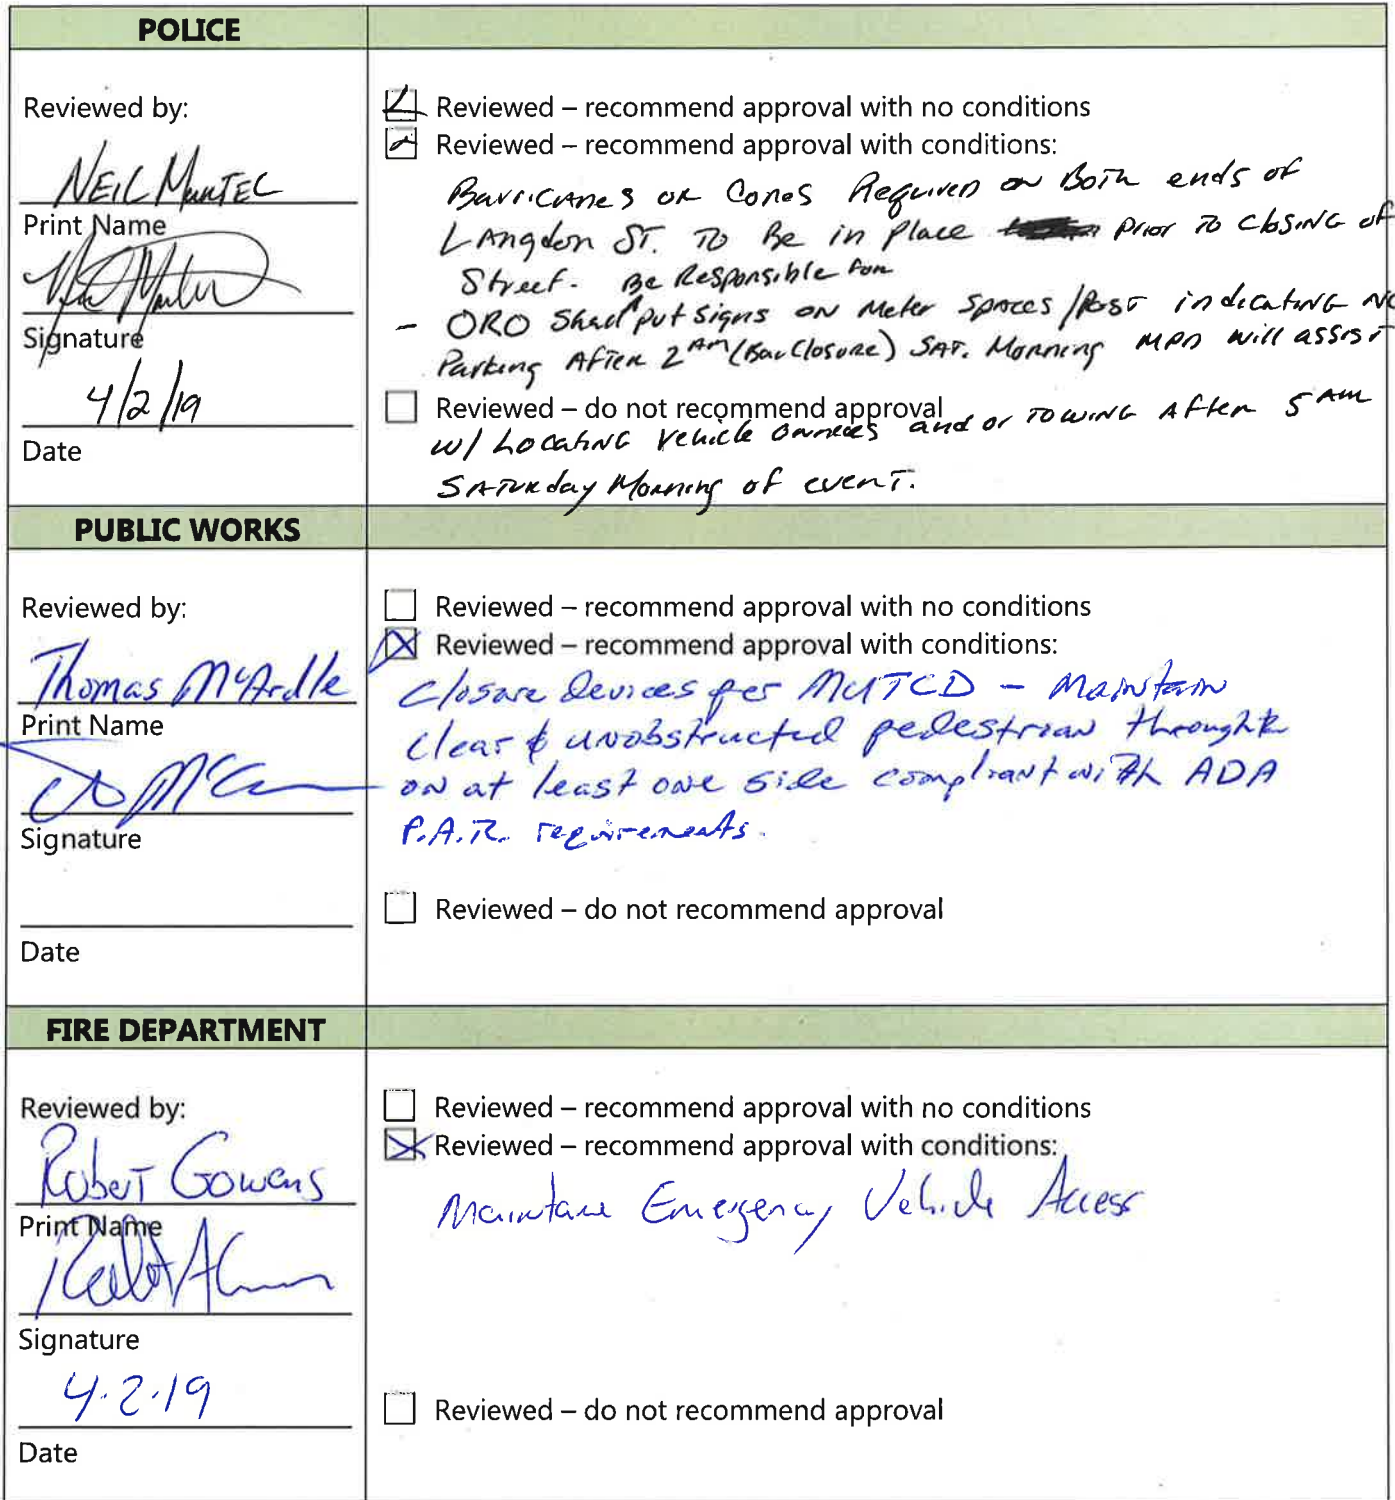 POLICE
Reviewed by:
NEIL MARTEL
Print Name
Signature
4/2/19
Date
Reviewed – recommend approval with no conditions
Reviewed – recommend approval with conditions:
Barricades or Cones Required on Both ends of
Langdon ST. To Be in Place Prior To Closing of
Street. Be Responsible for
- ORO Shall put Signs on Meter Spaces/Post indicating No
Parking After 2AM (Bar Closure) SAT. Morning MPD will assist
Reviewed – do not recommend approval
w/ Locating Vehicle Owners and or Towing After 5 AM
Saturday Morning of event.
PUBLIC WORKS
Reviewed by:
Thomas McArdle
Print Name
Signature
Date
Reviewed – recommend approval with no conditions
Reviewed – recommend approval with conditions:
Closure devices per MUTCD – Maintain
clear & unobstructed pedestrian
on at least one side compliant with ADA
P.A.R. requirements.
Reviewed – do not recommend approval
FIRE DEPARTMENT
Reviewed by:
Robert Gowans
Print Name
Signature
4.2.19
Date
Reviewed – recommend approval with no conditions
Reviewed – recommend approval with conditions:
Maintain Emergency Vehicle Access
Reviewed – do not recommend approval